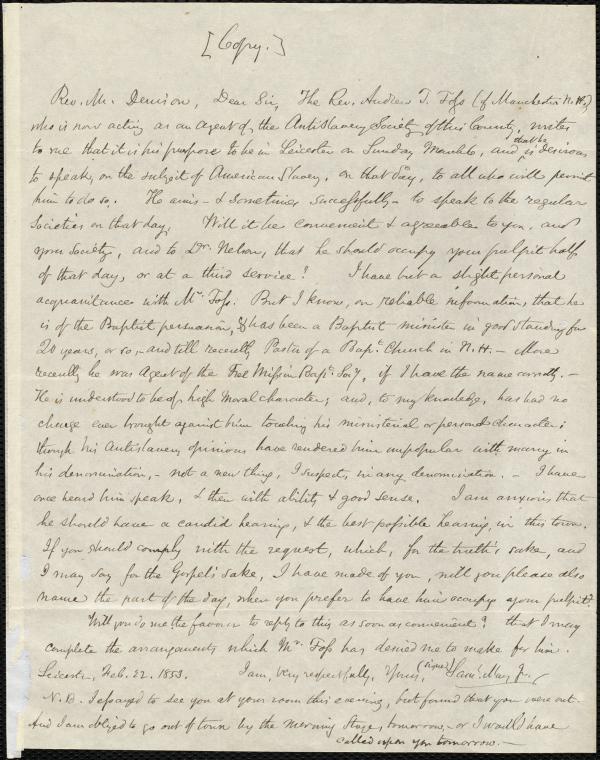 [Copy.]
Rev. Mr. Denison, Dear Sir, The Rev. Andrew T. Foss (of Manchester N.H.)
who is now acting as an agent of the Antislavery Society of this County, writes
to me that it is his purpose to be in Leicester on Sunday March 6, and that he is desirous
to speak, on the subject of American Slavery, on that day, to all who will permit
him to do so. He aims - & sometimes successfully - to speak to the regular
Societies on that day. Will it be convenient & agreeable to you, and
your Society, and to Dr. Nelson, that he should occupy your pulpit half
of that day, or at a third service? I have but a slight personal
acquaintance with Mr. Foss. But I know, on reliable information, that he
is of the Baptist persuasion, & has been a Baptist minister in good standing for
20 years, or so, - and till recently Pastor of a Bapt. Church in N.H. - More
recently he was Agent of the Free Mission Bapt. Soc'y, if I have the name correctly. -
He is understood to be of high moral character; and, to my knowledge, has had no
charge ever brought against him touching his ministerial or personal character;
though his Antislavery opinions have rendered him unpopular with many in
his denomination, - not a new thing, I suspect, in any denomination. - I have
once heard him speak, & then with ability & good sense. I am anxious that
he should have a candid hearing, & the best possible hearing, in this town.
If you should comply with the request, which, for the truth's sake, and
I may say for the Gospel's sake, I have made of you, will you please also
name the part of the day, when you prefer to have him occupy your pulpit?
Will you do me the favor to reply to this as soon as convenient? that I may
complete the arrangements which Mr. Foss has desired me to make for him.
Leicester, Feb. 22. 1853. I am, very respectfully, Yours, (signed) Saml. May Jr.
N.B. I essayed to see you at your room this evening, but found that you were out.
And I am obliged to go out of town by the morning Stage, tomorrow, or I would have
called upon you tomorrow. -